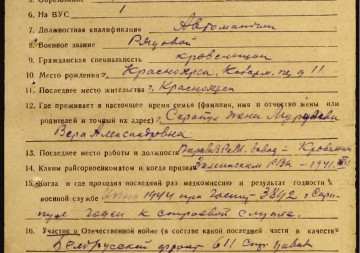 6. На ВУС 1
7. Должностная квалификация Автоматчик
8. Военное звание Рядовой
9. Гражданская специальность кровельщик
10. Место рождения г. Красноярск,
11. Последнее место жительства г. Красноярск
12. Где проживает в настоящее время семья (фамилия, имя и отчество жены или
родителей и точный адрес) г. Сарапул жена
Вера Александровна
13. Последнее место работы и должность завод – Кровельщик
14. Каким райгорвоенкоматом и когда призван РВК – 1941
15. Когда и где проходил последний раз медкомиссию и результат годности к
военной службе 1944 при 3842 г. Сара-
пул годен к строевой службе.
16. Участие в Отечественной войне (в составе какой последней части и в качестве
Белорусский фронт 611